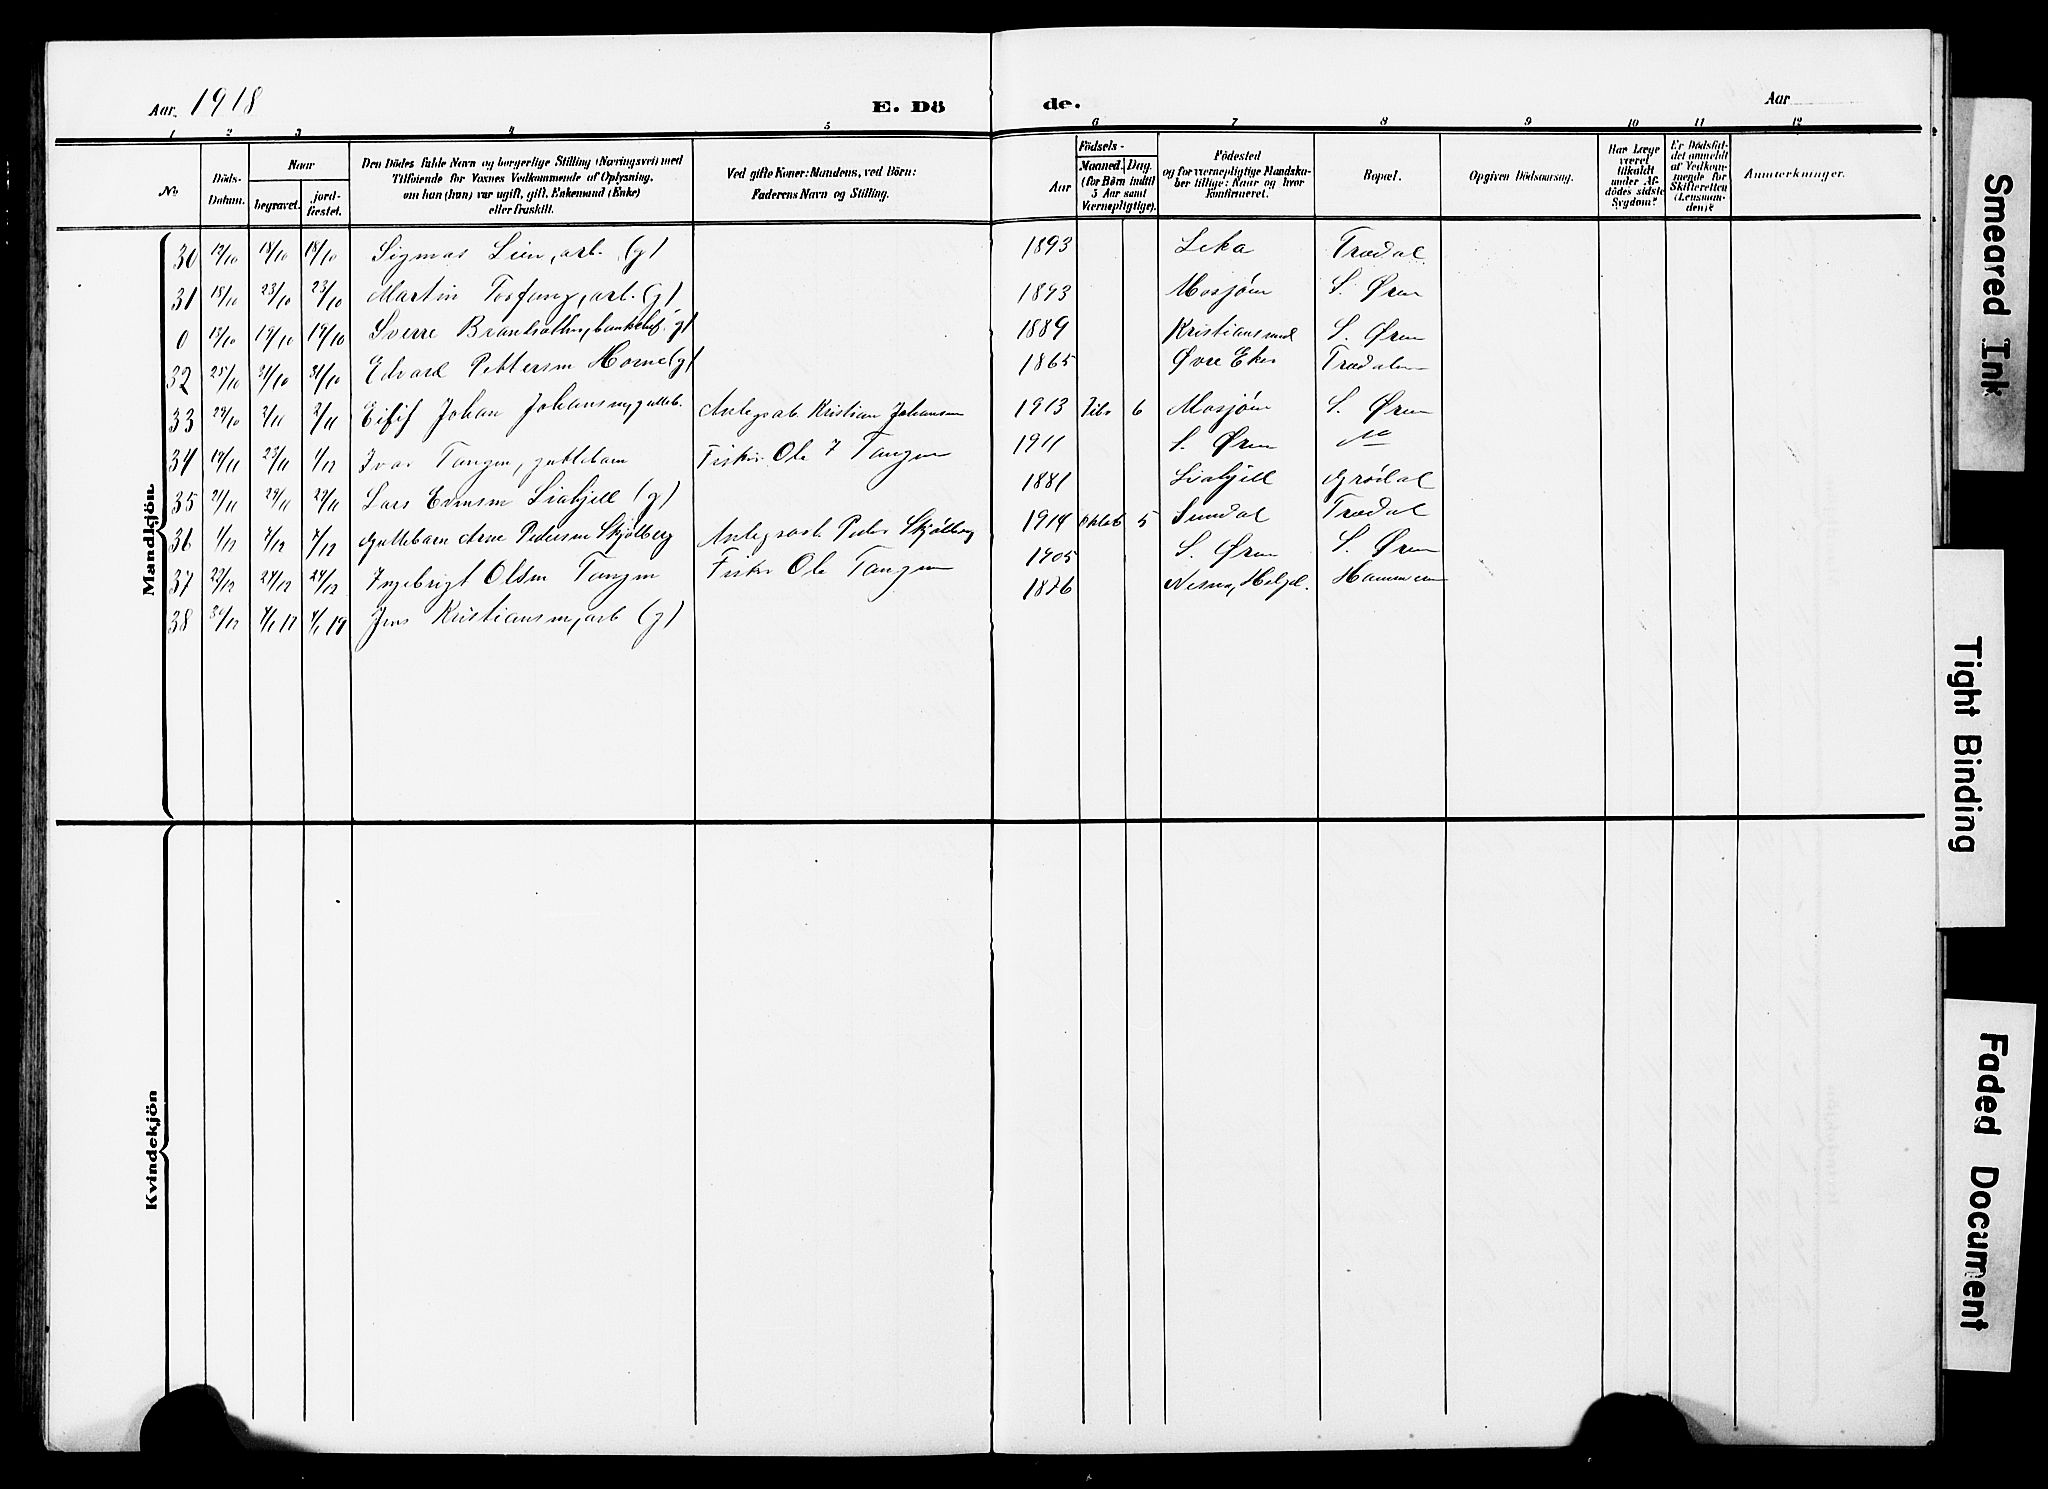 Aar 1918
E. Dö
de.
Aar
1 2 3 4 5 6 7 8 9 10 11 12
No
Döds-Datum.
Naar
begravet. jord-fæstet.
Den Dödes fulde Navn og borgerlige Stilling (Næringsvei) med
Tilföiende for Voxnes Vedkommende af Oplysning,
om han (hun) var ugift, gift, Enkemand (Enke)
eller fraskilt.
Ved gifte Koner: Mandens, ved Börn:
Faderens Navn og Stilling.
Födsels-
Aar
Maaned. Dag.
(for Børn indtil
5 Aar samt
Værnepligtige).
Födested
og for værnepligtige Mandska-
ber tillige: Naar og hvor
konfirmeret.
Bopæl.
Opgiven Dödsaarsag.
Har Læge
været
tilkaldt
under Af-
dödes sidste
Sygdom?
Er Dødsfal-
det anmeldt
af Vedkom-
mende for
Skifteretten
(Lensman-
den)?
Anmerkninger.
Mandkjön
30 12/10 18/10 18/10 Sigmar Lien, arb. (g) 1893 Leka Trædal
31 18/10 23/10 23/10 Martin Torfang, arb. (g) 1893 Mosjøen S. Øren
0 13/10 19/10 19/10 Sverre (g) 1889 Kristianssund S. Øren
32 25/10 31/10 31/10 Edvard Pettersen Horne (g) 1865 Øvre Eker Trædalen
33 29/10 2/11 2/11 Eilif Johan Johansen, gutteb. Anlegsarb Kristian Johansen 1913 Febr 6 Mosjøen S. Øren
34 19/11 23/11 1/12 Ivar Tangen, guttebarn Fisker Ole I Tangen 1911 S. Øren
35 21/11 29/11 29/11 Lars Evensen Liahjell (g) 1881 Liahjell Grødal
36 1/12 7/12 7/12 Guttebarn Arne Pedersen Skjølberg Anlegsarb Peder Skjølberg 1914 Oktob 5 Sundal Trædal
37 22/12 24/12 24/12 Ingebrigt Olsen Tangen Fisker Ole Tangen 1905 S. Øren S. Øren
38 30/12 4/1 19 4/1 19 Jens Kristiansen, arb (g) 1876 Nesna, Helgel. Hammeren
Kvindekjön
Smeared Ink
Tight Binding
Faded Document